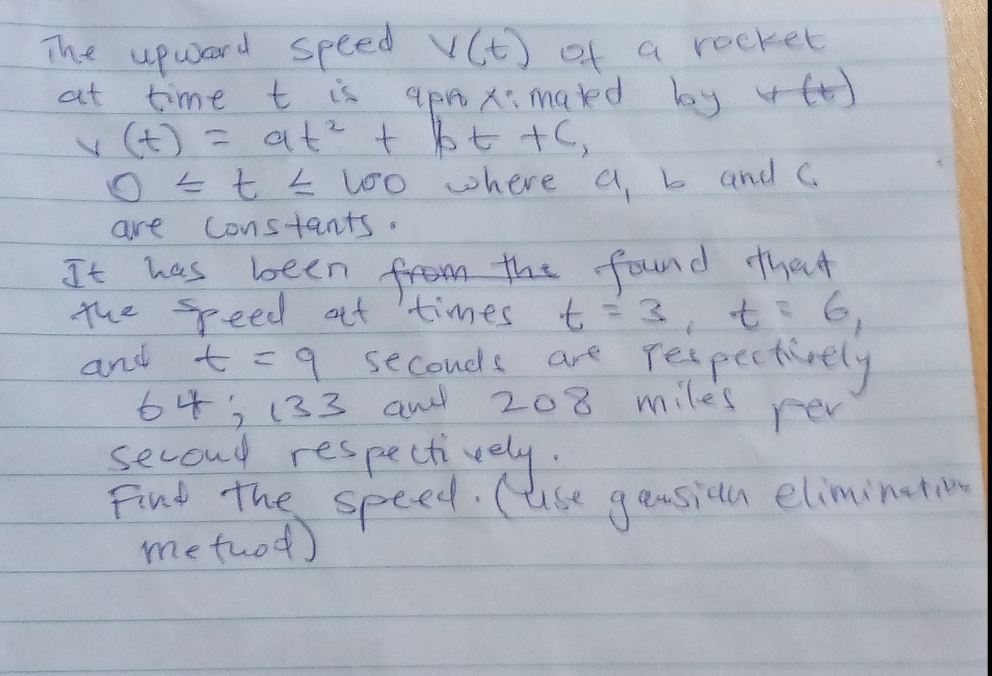 The upward speed v(t) of a rocket
at time t is aproximated by v(t)
v(t) = at² + bt + c,
0 ≤ t ≤ 100 where a, b and c
are constants.
It has been from the found that
the speed at times t = 3, t = 6,
and t = 9 seconds are respectively
64; 133 and 208 miles per
second respectively.
Find the speed. (use gausian elimination
method)